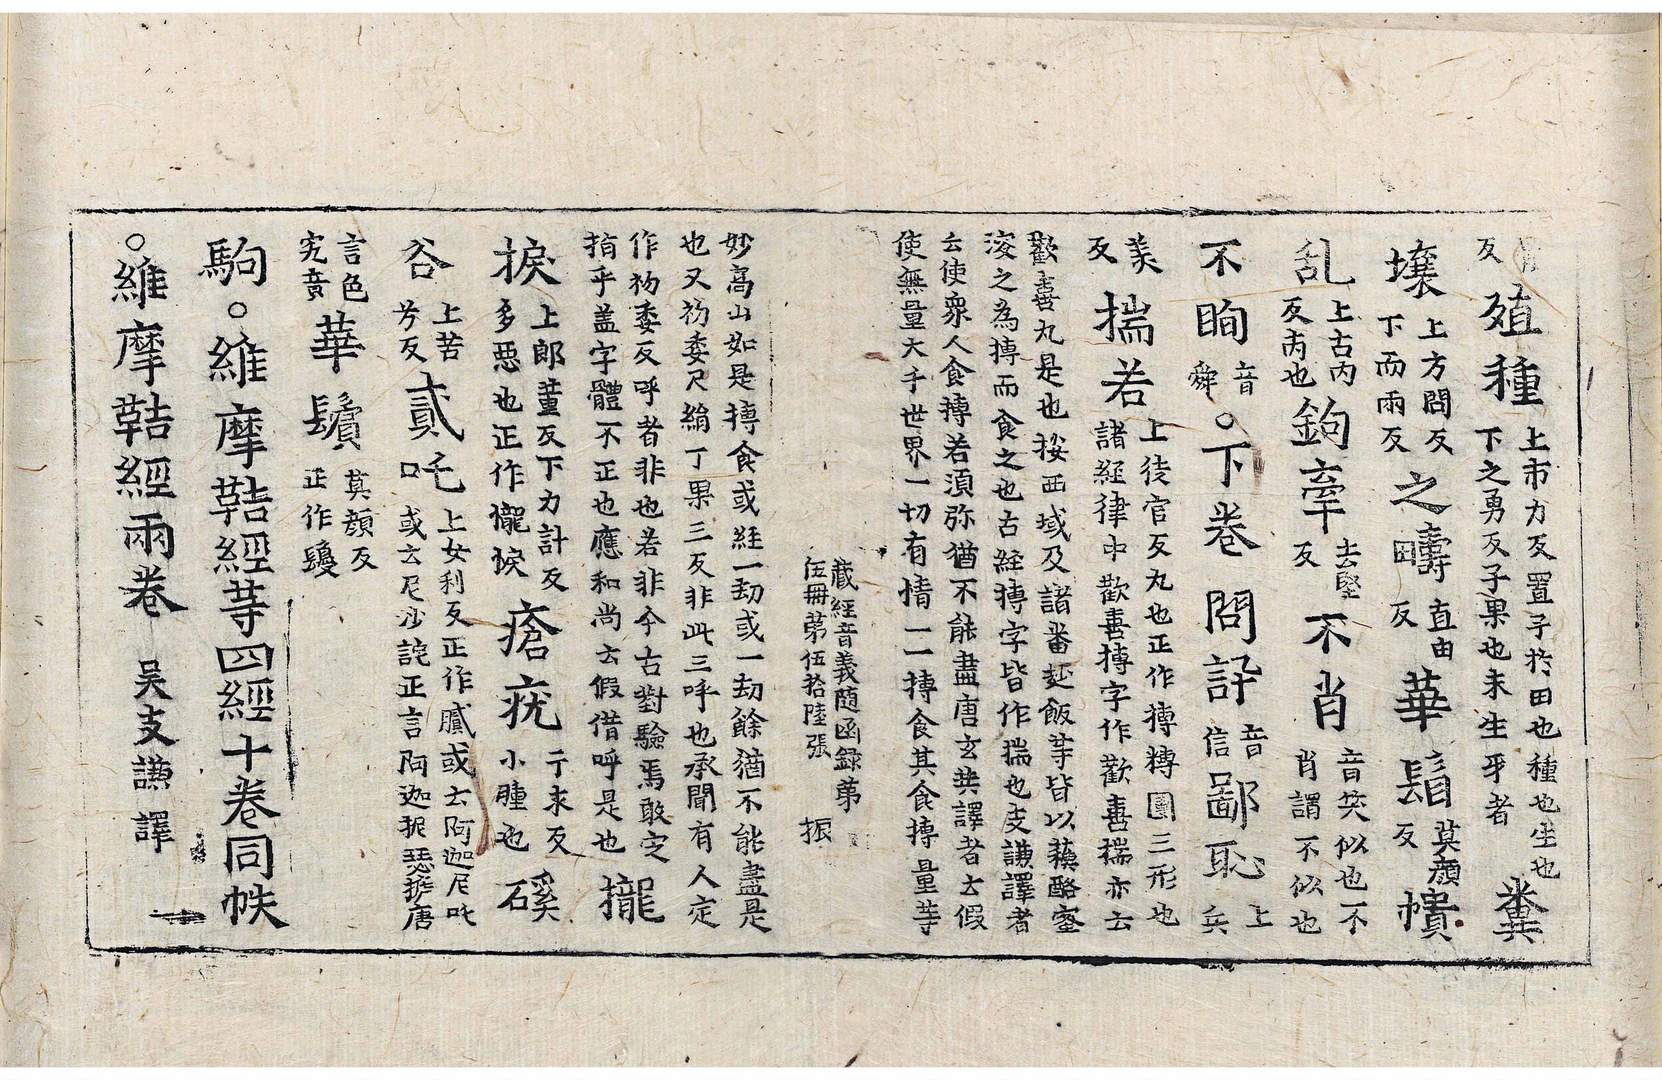 反 殖種 上市力反置子扵田也種也生也下之勇反子果也未生牙者 糞
壤 上方問反下而兩反 之疇 直由反 華鬘 莫顔反 幩
乱 上古内反 也 鉤牽 去堅反 不肖 音笑似也不肖謂不似也
不眴 音舜 。下卷 問訊 音信 鄙恥 上兵
美反 揣若 上徒官反丸也正作摶團三形也諸經律中歡喜摶字作歡喜揣亦云
歡喜丸是也按西域及諸番麨飯䓁皆以蘓酪蜜
溲之為摶而食之也古經摶字皆作揣也支謙譯者
云使衆人食摶若須弥猶不能盡唐玄奘譯者云假
使無量大千世界一切有情一一摶食其食摶量䓁
藏經音義随函録第
伍冊第伍拾陸張 振
妙髙山如是摶食或經一劫或一劫餘猶不能盡是
也又初委尺絹丁果三反非此三呼也承聞有人定
作初委反呼者非也若非今古對驗焉敢定
指乎盖字體不正也應和尚云假借呼是也 攏
捩 上郎董反下力計反多惡也正作㦕悷 瘡疣 于求反小腫也 磎
谷 上苦兮反 貳吒 上女利反正作膩或云阿迦尼吒或云尼沙詫正言阿迦抳瑟搋唐
言色究竟 華鬚 莫顔反正作鬘
駒。維摩䛊經䓁四經十卷同帙
。維摩䛊經兩卷 吴支謙譯